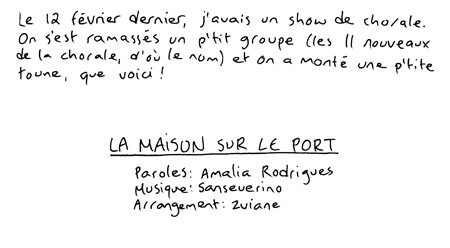 Le 12 février dernier, j'avais un show de chorale.
On s'est ramassés un p'tit groupe (les 11 nouveaux
de la chorale, d'où le nom) et on a monté une p'tite
toune, que voici !
LA MAISON SUR LE PORT
Paroles: Amalia Rodrigues
Musique: Sanseverino
Arrangement: Zviane